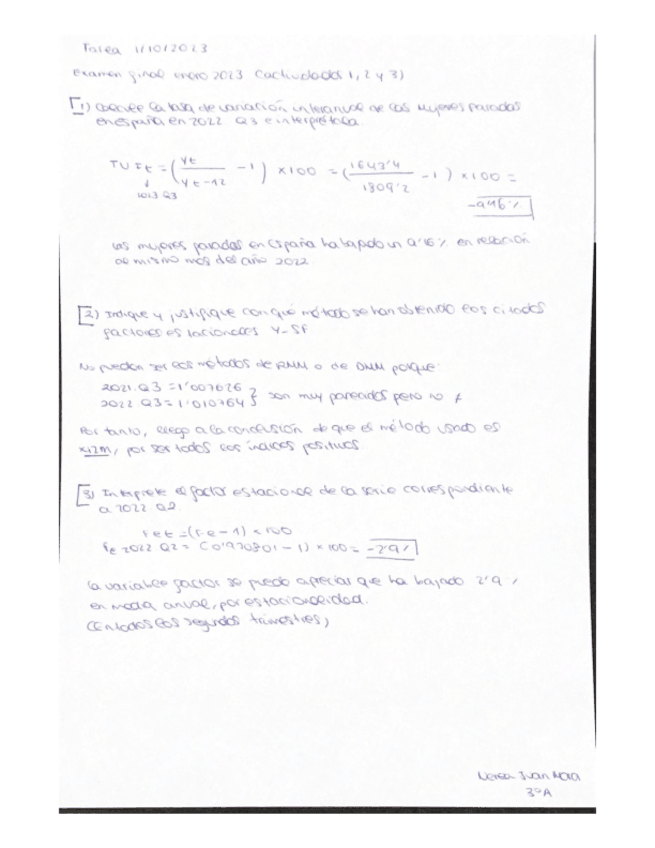 Tarea 1/10/2023
Examen final enero 2023 (actividades 1, 2 y 3)
1) Calcule la tasa de variación interanual de las mujeres paradas
en españa en 2022 Q3 e interprétala.
= (yt / yt-12 - 1) x 100 = (1643'4 / 1809'2 - 1) x 100 =
Q3
-9'16%
las mujeres paradas en España ha bajado un 9'16% en relación
al mismo mes del año 2022.
2) Indique y justifique con qué método se han obtenido los citados
factores estacionales Y-SF
No pueden ser los métodos de RMM o de DMM porque
2021.Q3 = 1'007626
2022.Q3 = 1'010764 } son muy parecidos pero no ≠
Por tanto, llego a la conclusión de que el método usado es
x12m, por ser todos los índices positivos.
3) Interprete el factor estacional de la serie correspondiente
a 2022.Q2.
Fet = (Fe - 1) x 100
Fe 2022 Q2 = (0'970801 - 1) x 100 = -2'9%
la variable factor se puede apreciar que ha bajado 2'9%
en media anual, por estacionalidad.
(En todos los segundos trimestres)
Nerea Juan
3ºA